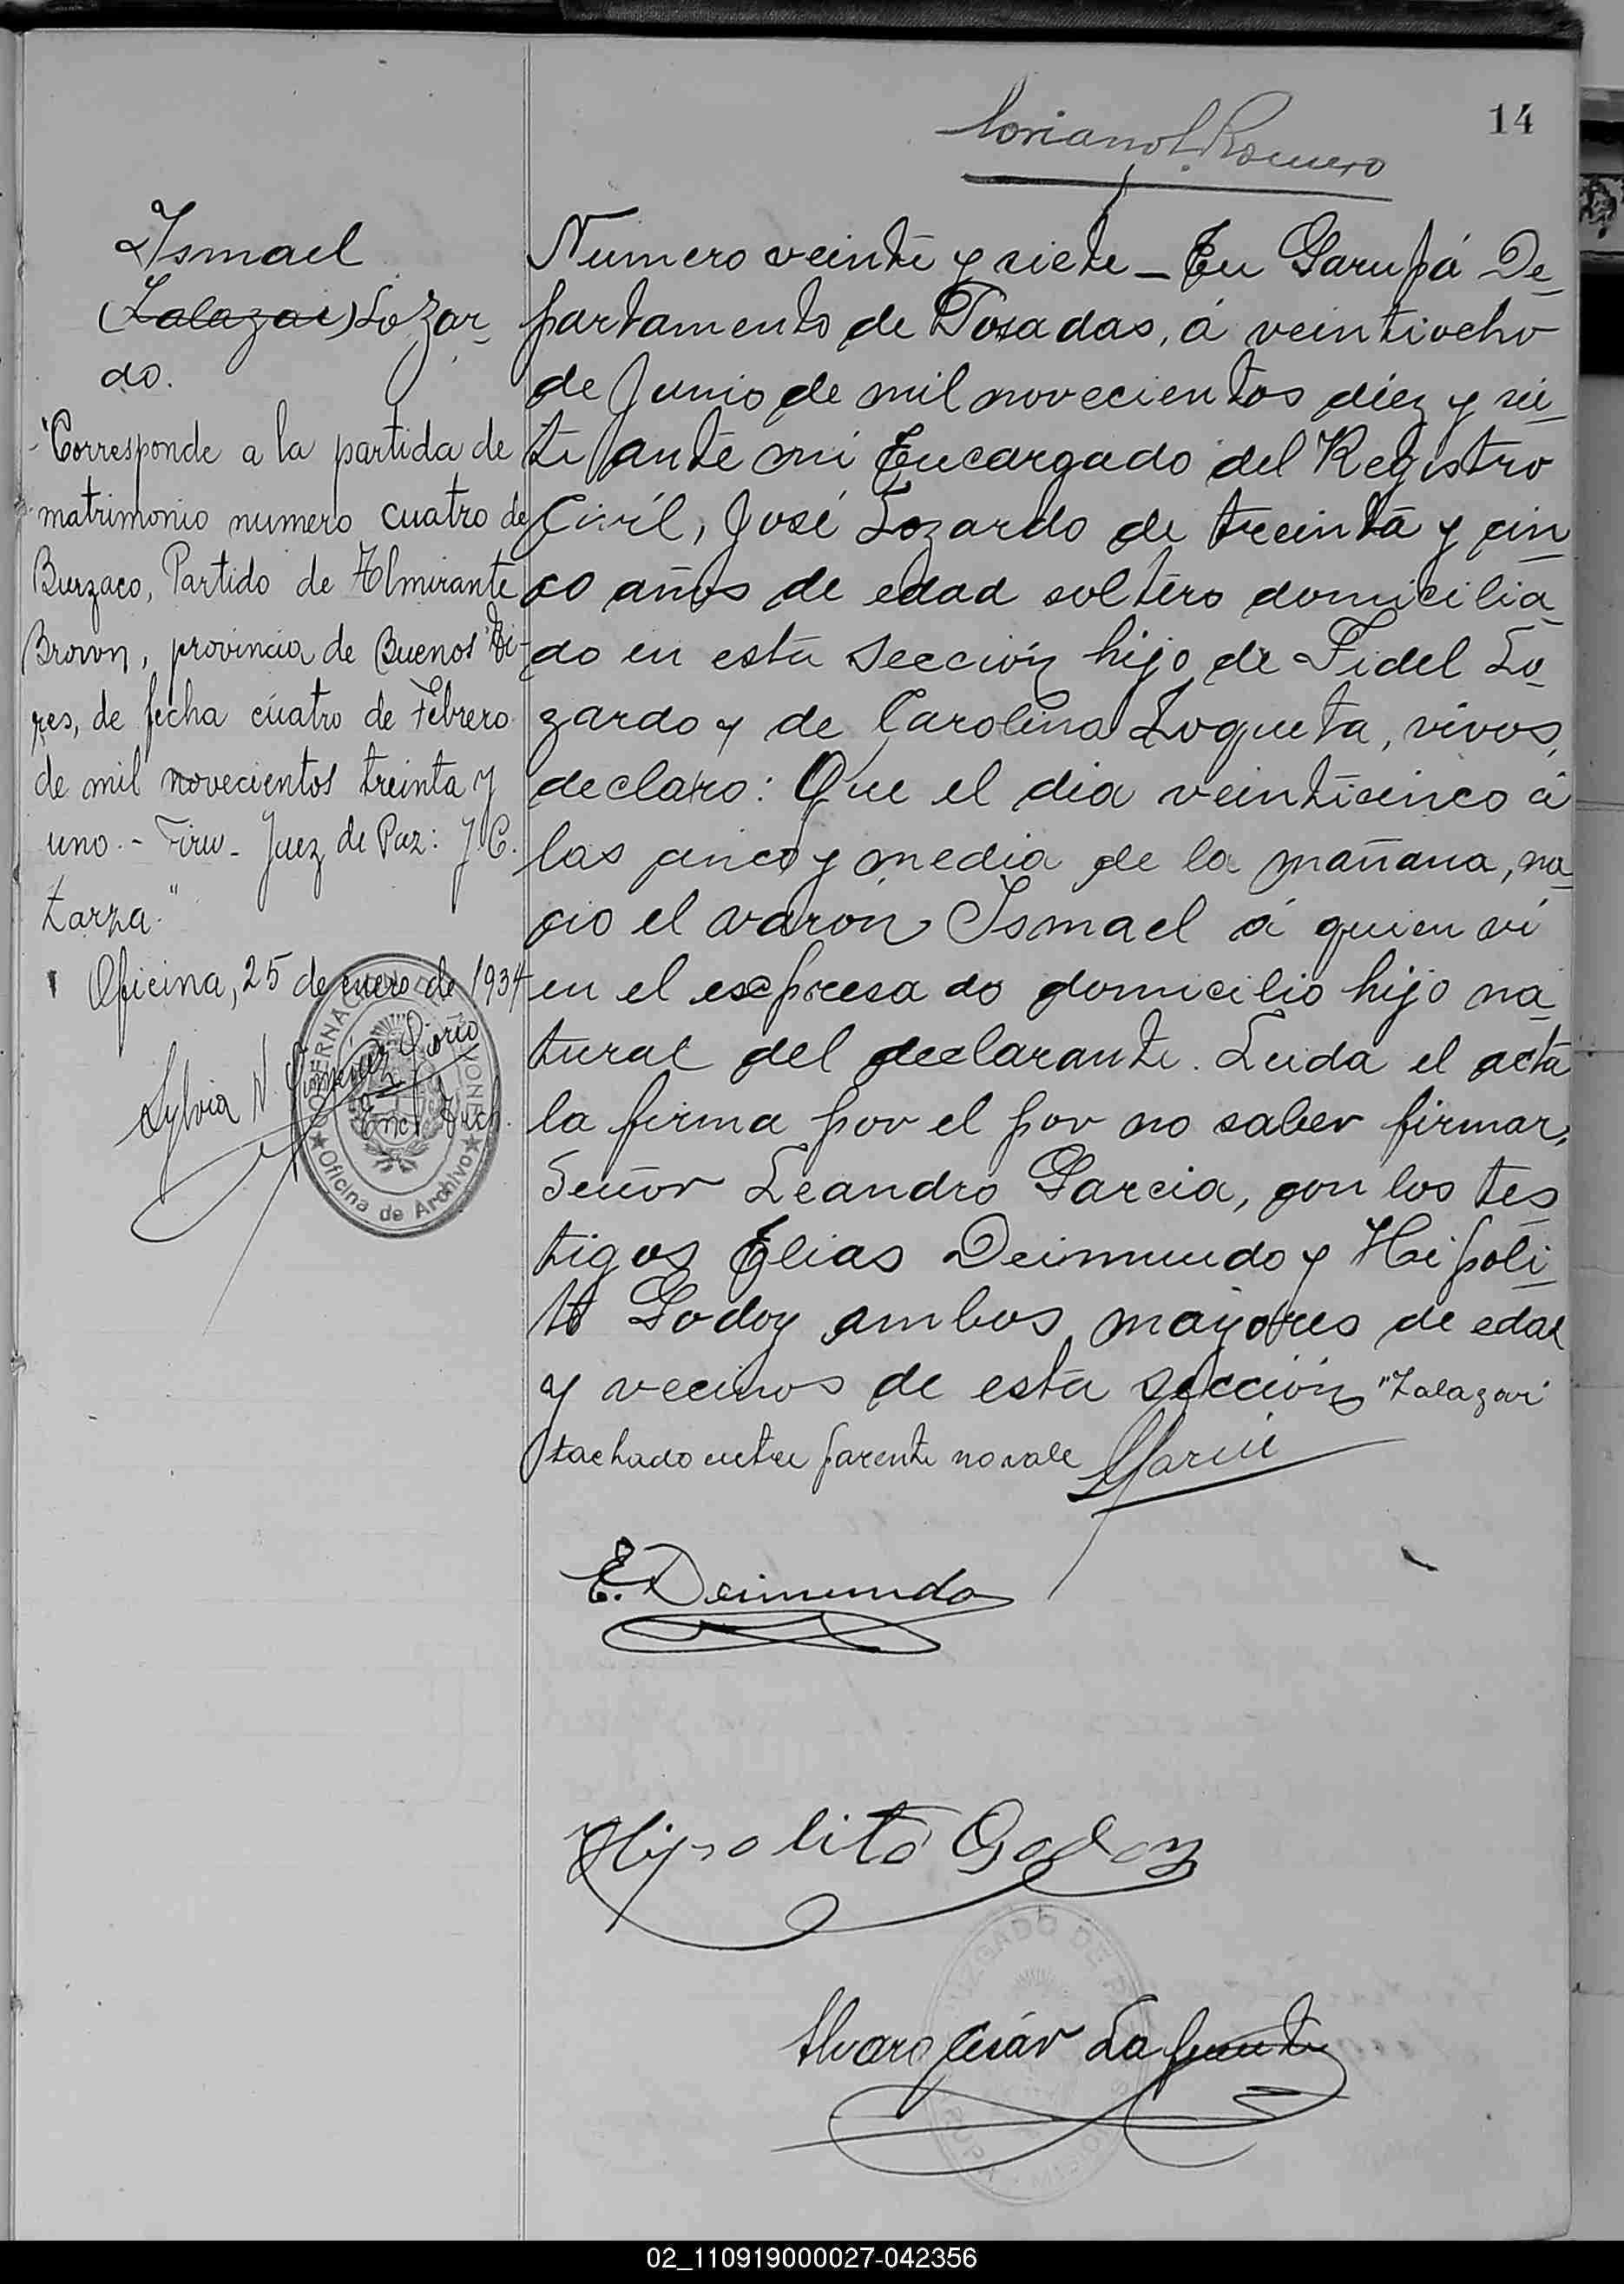 14
Romero
Ismael
(Zalazar) Lozar-
do.
"Corresponde a la partida de
matrimonio numero cuatro de
Burzaco, Partido de Almirante
Brown, provincia de Buenos Ai-
res, de fecha cuatro de Febrero
de mil novecientos treinta y
uno. - Firw - Juez de Paz: J. C.
Zarza."
Oficina, 25 de enero de 1934
Sylvia N. Gimenez
Oficina de Archivo
Numero veinte y siete _ En Garupá De-
partamento de Posadas, á veintiocho
de Junio de mil novecientos diez y sie-
te ante mi Encargado del Registro
Civil, José Lozardo de treinta y cin
co años de edad soltero domicilia
do en esta sección hijo de Fidel Lo
zardo y de Carolina Loqueta, vivos,
declaro: Que el dia veinticinco á
las cinco y media de la mañana, na
cio el varon Ismael á quien vi
en el expresado domicilio hijo na
tural del declarante. Leida el acta
la firma por el por no saber firmar,
Señor Leandro Garcia, con los tes
tigos Elias Deimundo y Hipoli
to Godoy ambos mayores de edad
y vecinos de esta sección "Zalazar"
tachado entre parente no vale
E. Deimundo
Hipolito Godoy
Alvaro César Lafuente
JUZGADO DE
02_110919000027-042356